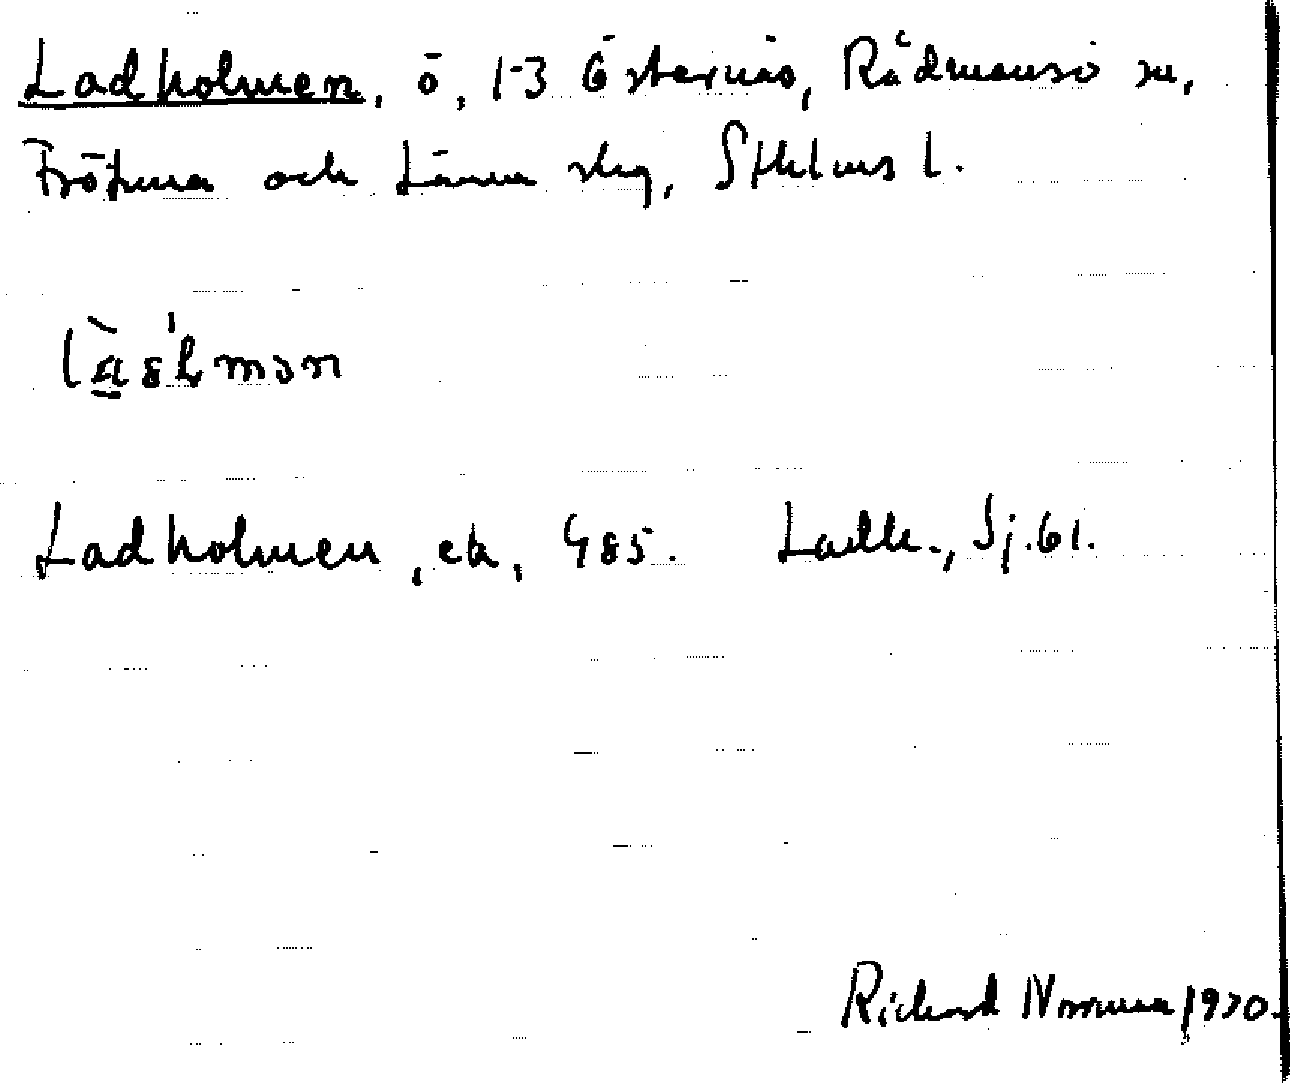 Ladholmen, ö, 1-3 Östernäs, Rådmansö sn,
Frötuna och Länna skg, Sthlms l.
Ladholmen, ek, 485. Ladh., Sj. 61.
Richard Norman 1970.